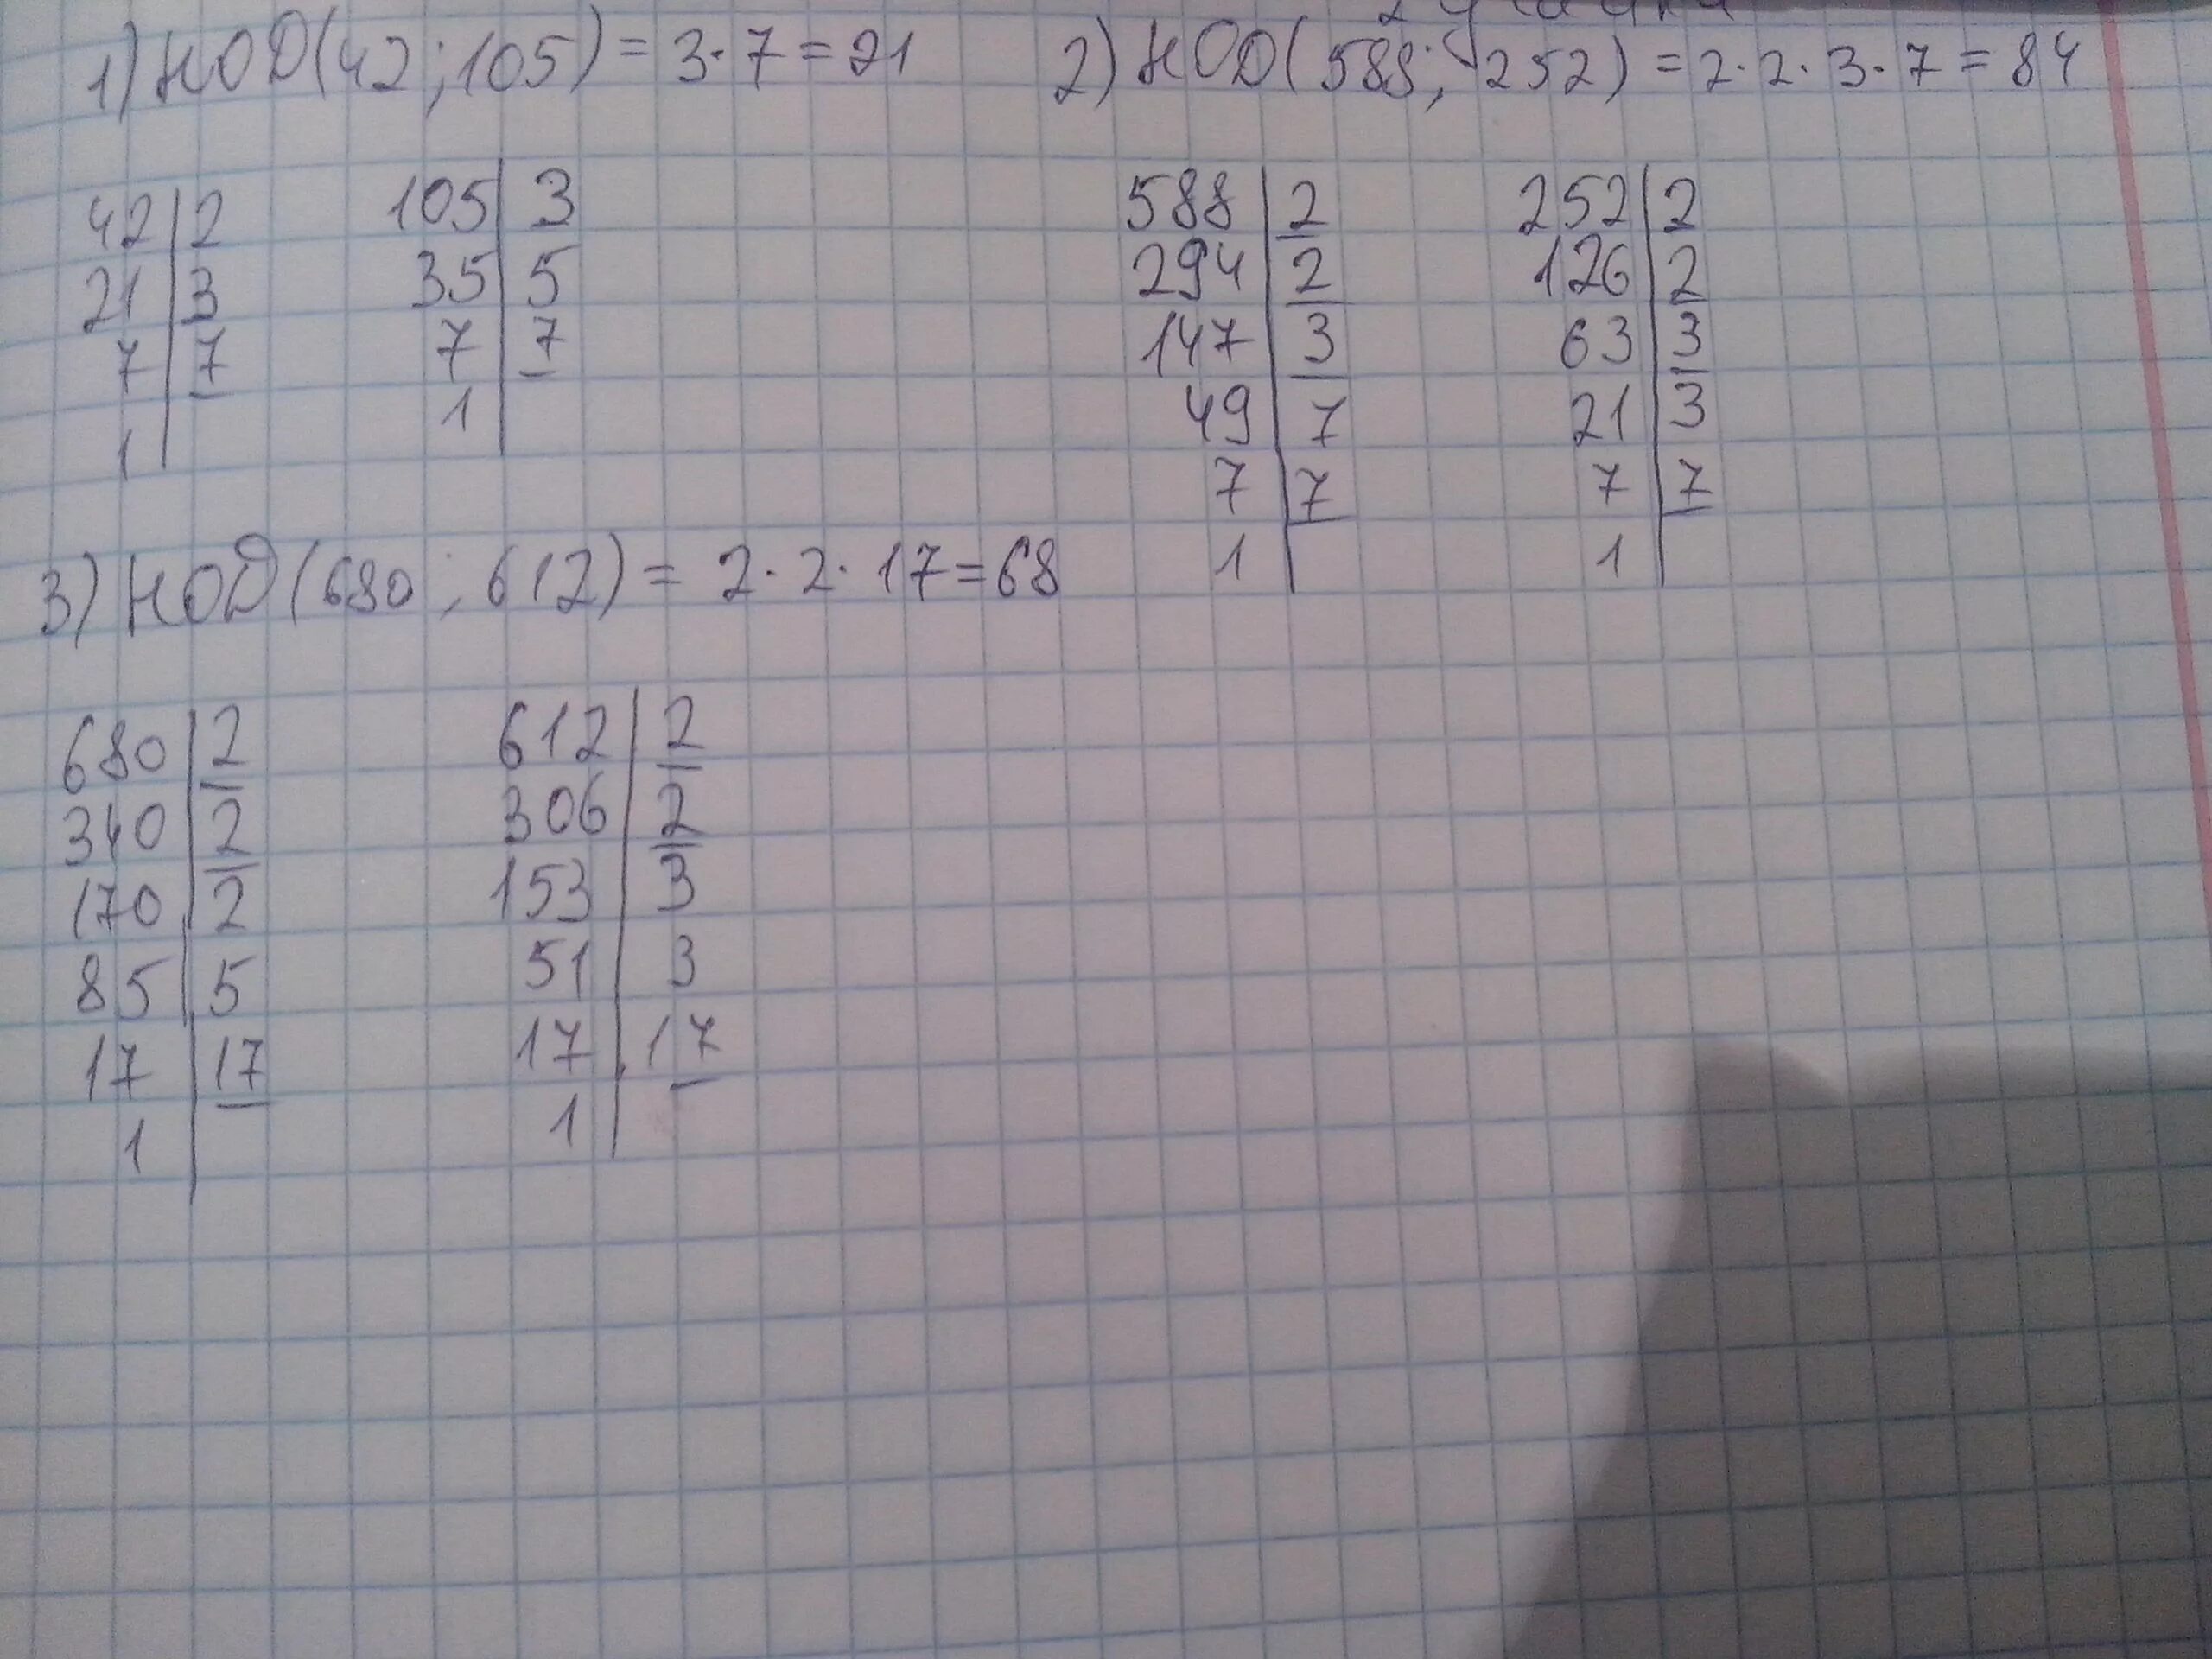 1) НОД(42;105) = 3·7=21
42|2
21|3
7|7
1|
105|3
35|5
7|7
1|
2) НОД(588; 252) = 2·2·3·7=84
588|2
294|2
147|3
49|7
7|7
1|
252|2
126|2
63|3
21|3
7|7
1|
3) НОД(680;612) = 2·2·17=68
680|2
340|2
170|2
85|5
17|17
1|
612|2
306|2
153|3
51|3
17|17
1|